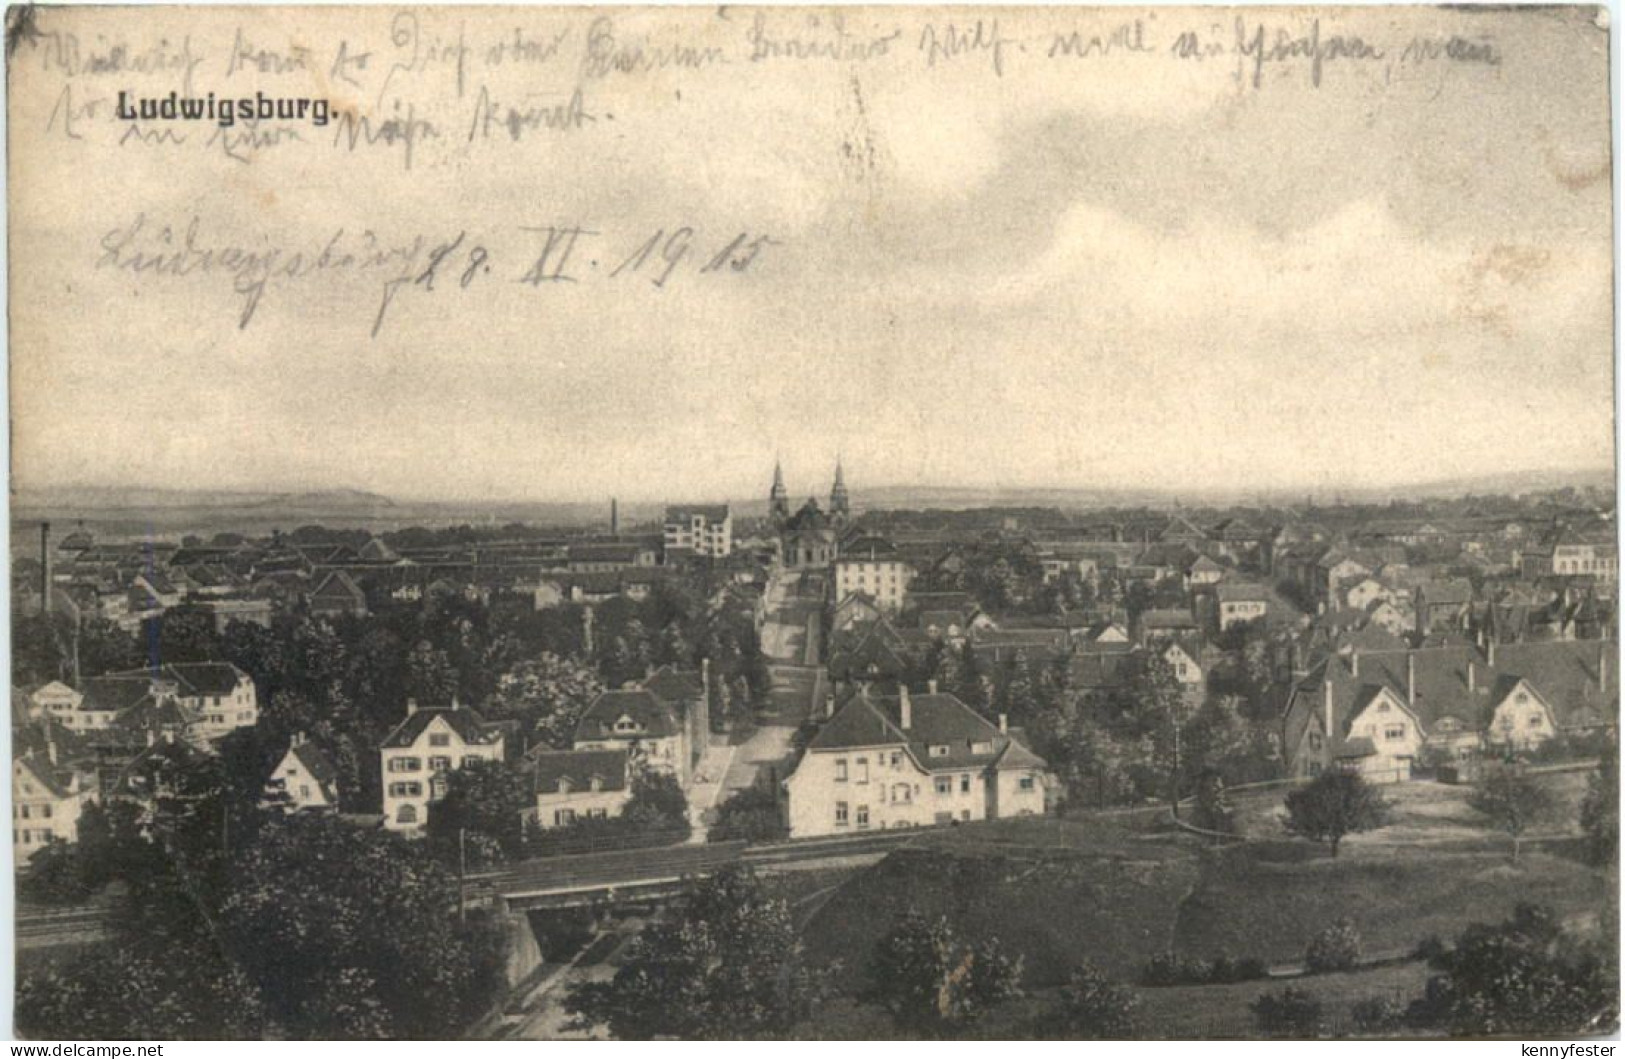 Vielleicht kann so Dich oder Deinen Bruder Wilh. mal aufsuchen, wann
Ludwigsburg.
in eure Nähe kommt.
Ludwigsburg 8. XI. 1915
www.delcampe.net
kennyfester